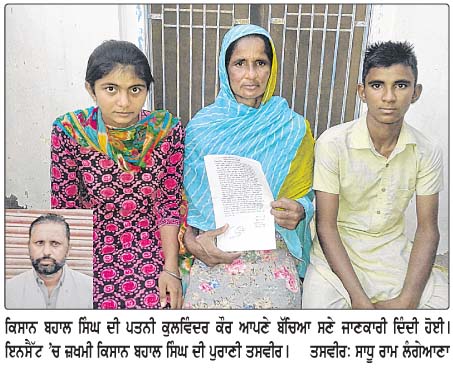 ਕਿਸਾਨ ਬਹਾਲ ਸਿੰਘ ਦੀ ਪਤਨੀ ਕੁਲਵਿੰਦਰ ਕੌਰ ਆਪਣੇ ਬੱਚਿਆ ਸਣੇ ਜਾਣਕਾਰੀ ਦਿੰਦੀ ਹੋਈ।
ਇਨਸੈੱਟ 'ਚ ਜ਼ਖਮੀ ਕਿਸਾਨ ਬਹਾਲ ਸਿੰਘ ਦੀ ਪੁਰਾਣੀ ਤਸਵੀਰ। ਤਸਵੀਰ: ਸਾਧੂ ਰਾਮ ਲੰਗੇਆਣਾ